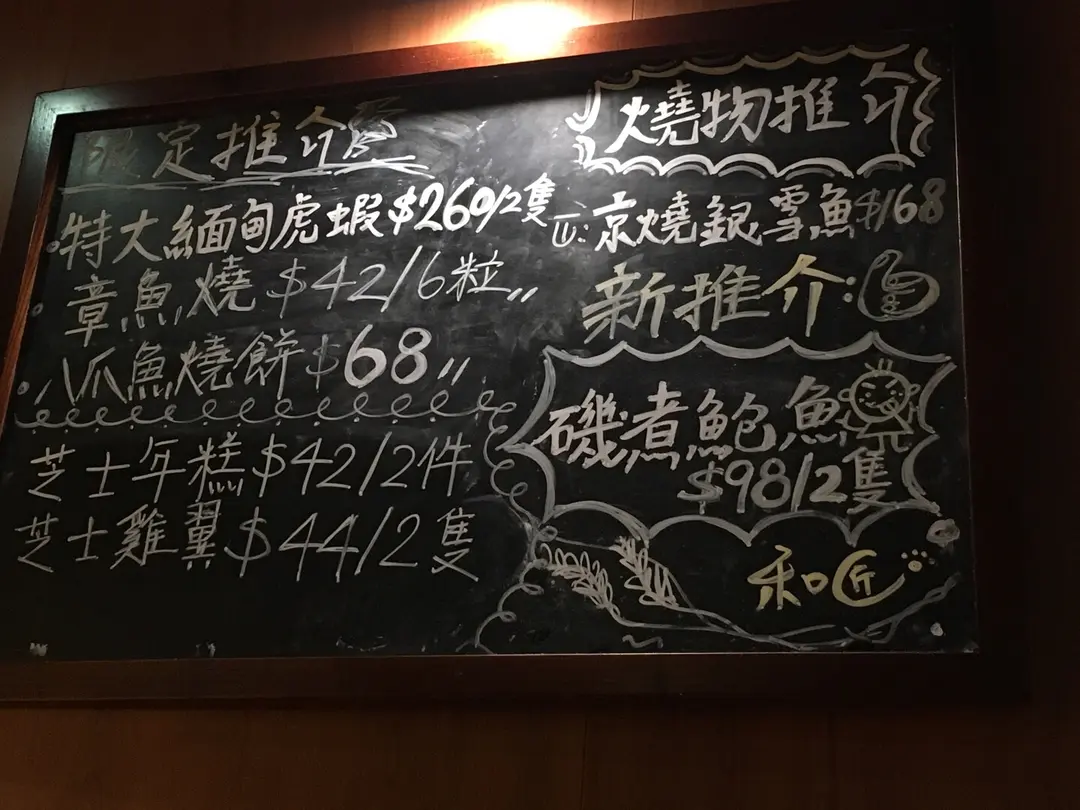 限定推介
特大緬甸虎蝦$260/2隻
章魚燒$42/6粒
八爪魚燒餅$68
芝士年糕$42/2件
芝士雞翼$44/2隻
燒物推介
京燒銀雪魚$168
新推介:
磯煮鮑魚
$98/2隻
和匠